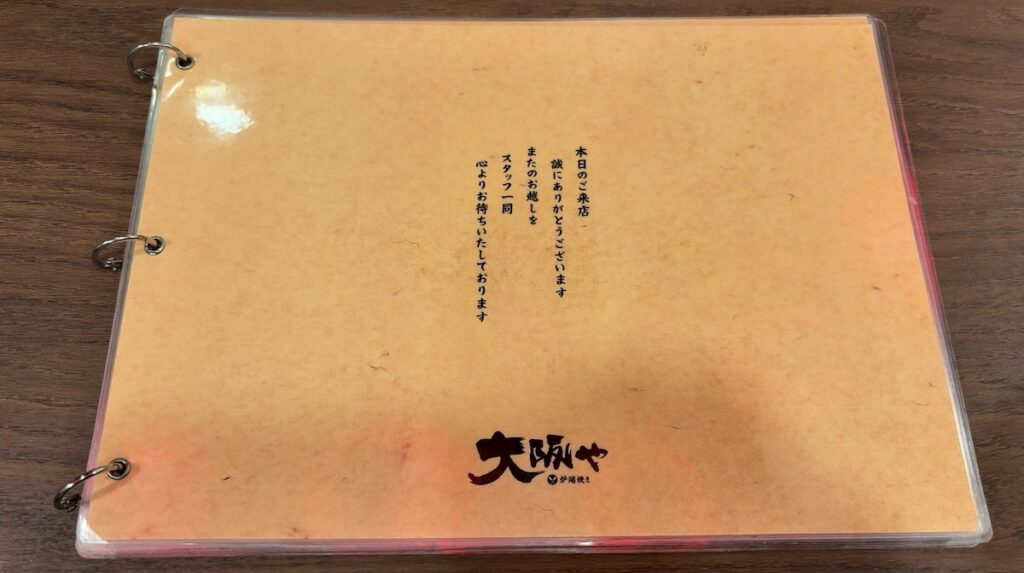 本日のご来店
誠にありがとうございます
またのお越しを
スタッフ一同
心よりお待ちいたしております
大阪や
炉端焼き